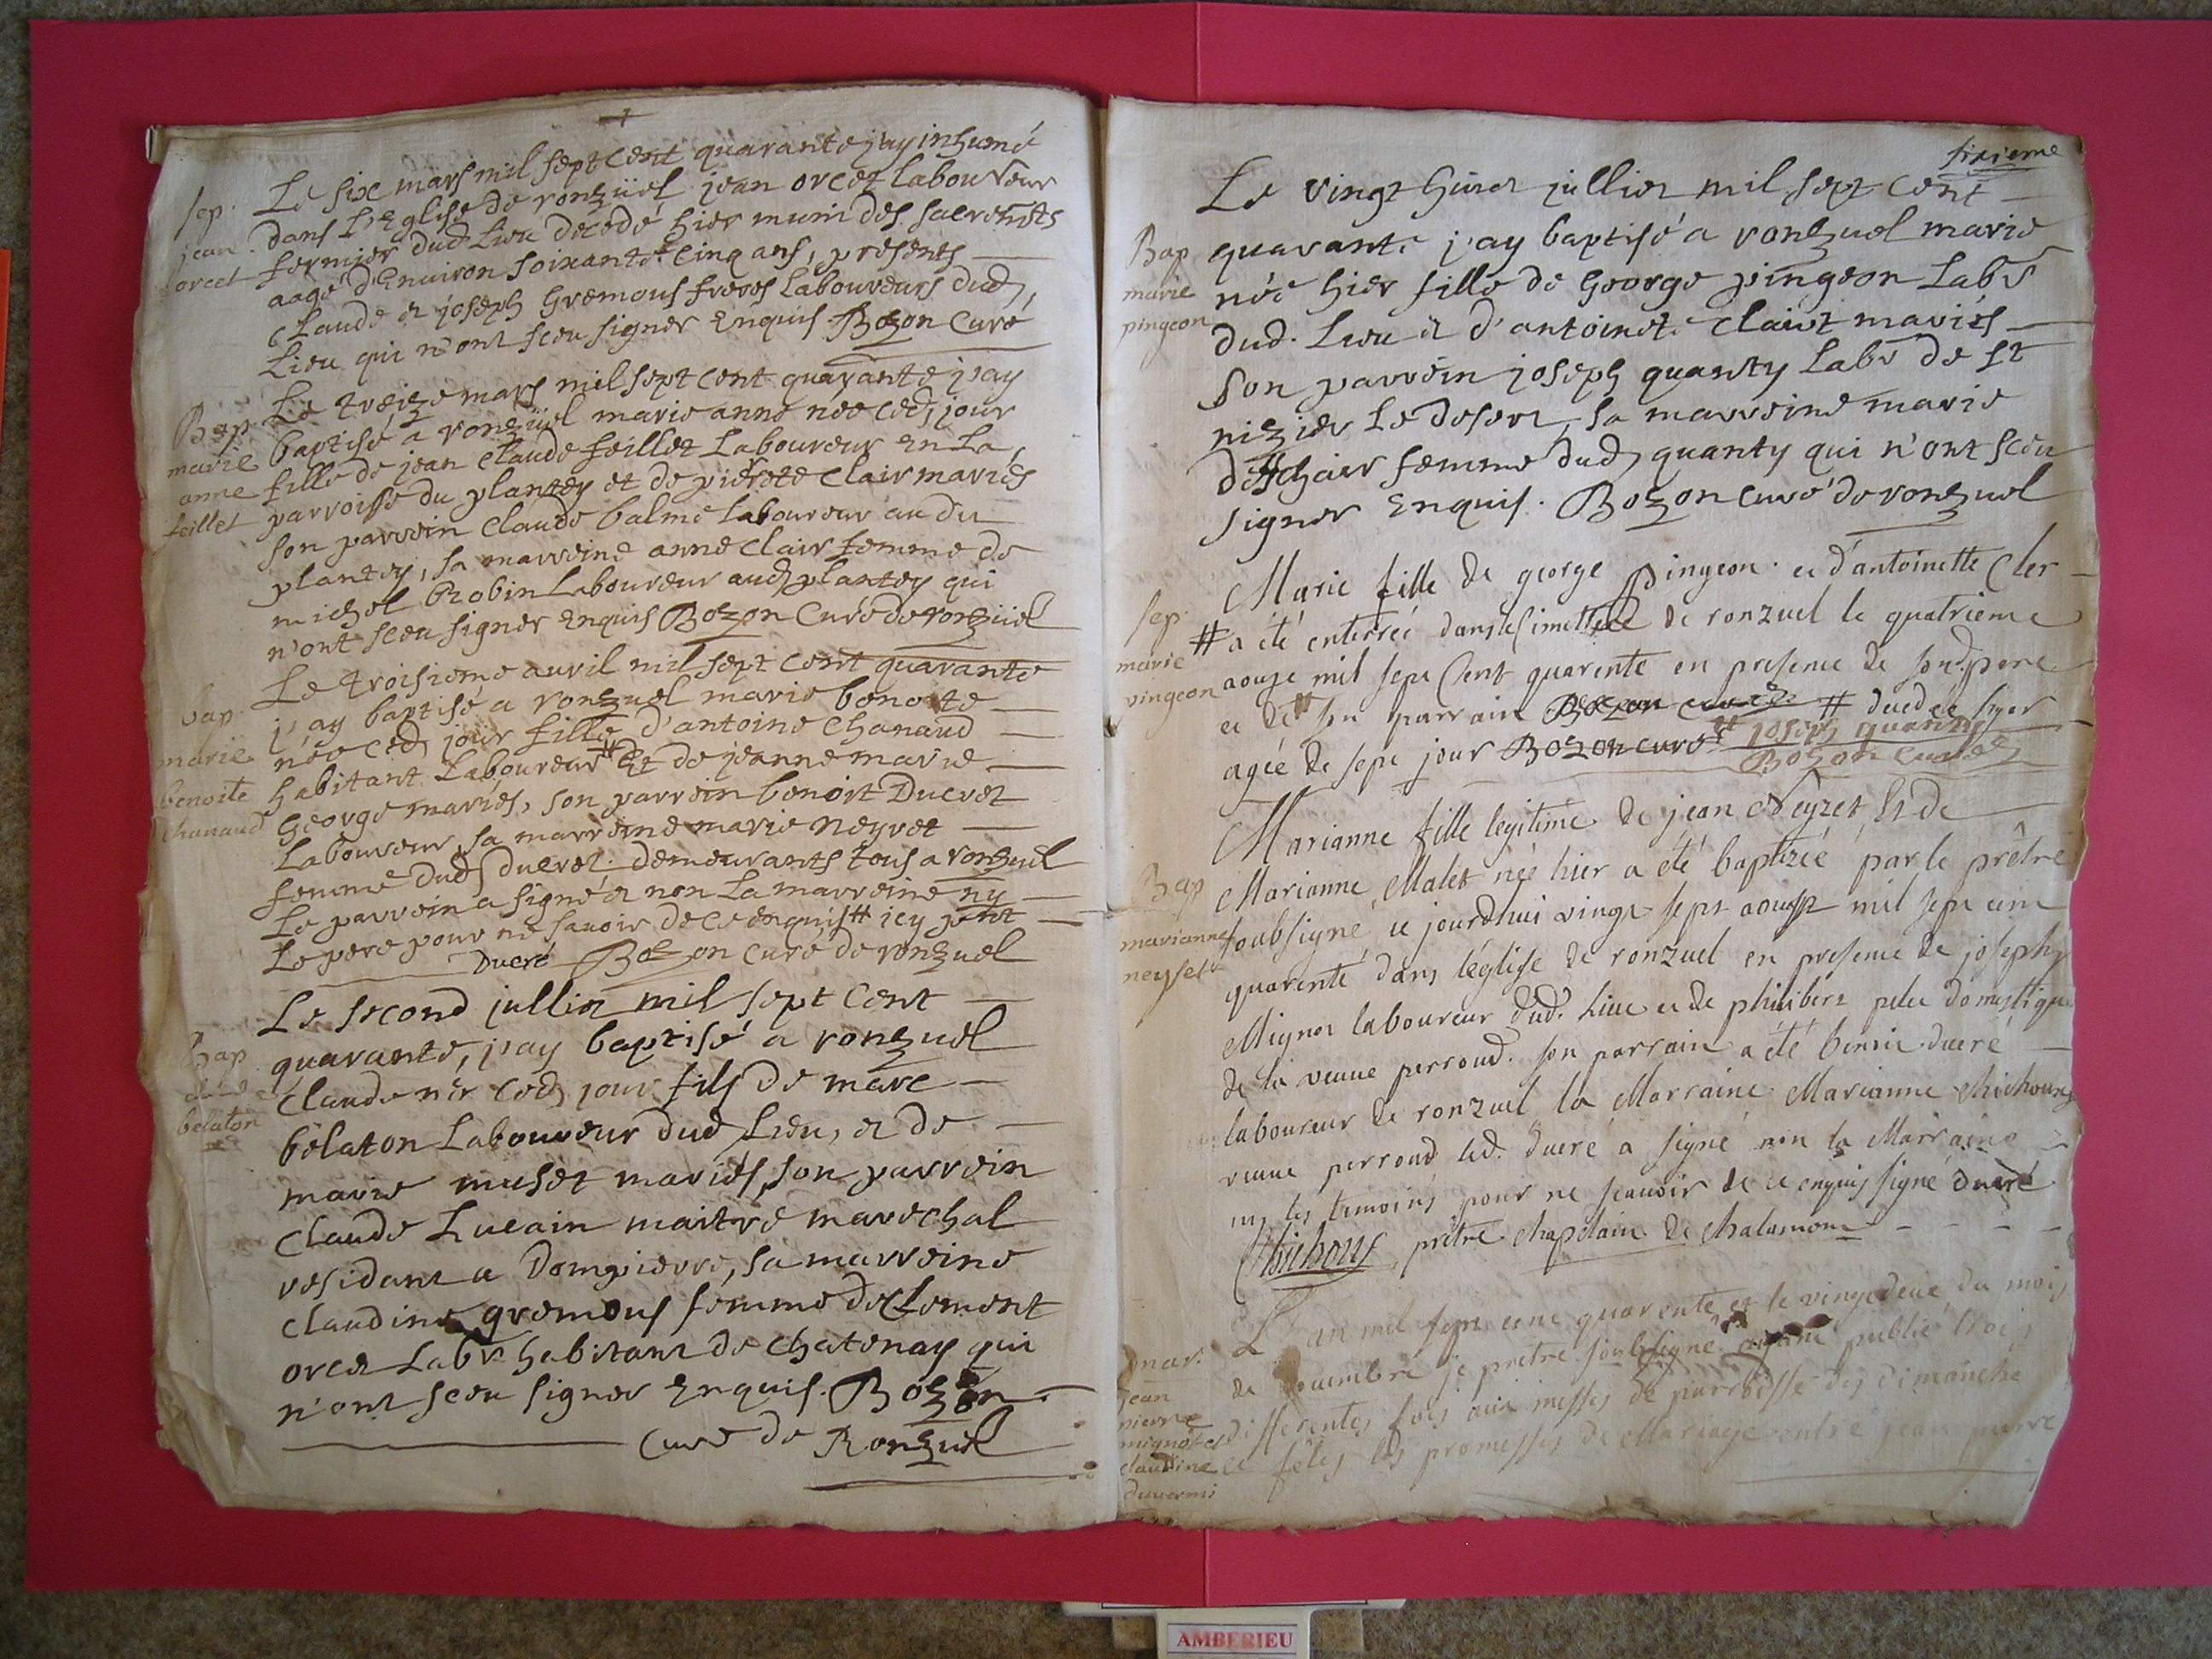 Le six mars mil sept cent quarante j'ay inhumé
sep. dans L'Eglise de ronzüel jean orcet laboureur
jean fermier dud Lieu decedé hier muni des sacrements
orcet aagé d'Enuiron soixante cinq ans, presents
claude et joseph Gremous freres Laboureurs dud,
Lieu qui n'ont sceu signer Enquis. Bozon Curé
Le treize mars mil sept cent quarante j'ay
Bap. baptisé a ronzüel marie anne née ced, jour
marie fille de jean claude feillet Laboureur En La,
anne parroisse du plantey et de pierrete Clair mariés
feillet son parrein Claude balme Laboureur au du
plantey, sa marreine anne Clair femme de
michel Robin Laboureur aud, plantey qui
n'ont sceu signer Enquis Bozon Curé de ronzüel
Le troisieme auril mil sept cent quarante
bap. j'ay baptisé a ronzuel marie benoite
marie née ced, jour fille d'antoine Chanaud
benoite habitant Laboureur # Et de jeanne marie
chanaud George mariés, son parrein benoit Ducret
Laboureur, sa marreine marie neyret
femme dud, ducret. demeurants tous a ronzuel
Le parrein a signé et non La marreine ny
Le pere pour ne sauoir de ce enquis # icy
Ducré Bozon curé de ronzuel
Le second jullier mil sept Cent
bap quarante, j'ay baptisé a ronzuel
claude né Ced, jour fils de marc
belaton belaton Laboureur dud Lieu, et de
marie muset mariés, son parrein
Claude Lucain maitre marechal
residant a Dompierre, sa marreine
claudine gremous femme de Clement
orcet Labr. habitant de Chatenay qui
n'ont sceu signer Enquis. Bozon
Curé de Ronzuel
sixieme
Le vingt huiet jullier mil sept Cent
Bap quarante j'ay baptisé a ronzuel marie
marie née hier fille de George pingeon Labr
pingeon dud. Lieu et d'antoinete Clair mariés
son parrein joseph quanty Labr de st
nizier Le desert, sa marreine marie
dechair femme dud, quanty qui n'ont sceu
signer Enquis. Bozon Curé de ronzuel
Marie fille de george pingeon et d'antoinette Cler
sep. # a été enterreé dans le simettiere de ronzuel le quatrieme
marie aoust mil sept Cent quarente en presence de sond. pere
pingeon et de # son parrain Bozon curé # hyer
ageé de sept jour Bozon curé # joseph quanty
Bozon Curé
Marianne fille legitime de jean Neyret, Et de
Bap Marianne Malet née hier a été baptizée par le prêtre
marianne soubsigné ce jourdhui vingt sept aoust mil sept cent
neyret quarente dans léglise de ronzuel en presence de joseph
Mignot laboureur dud. Lieu et de philibert domestique
de la veuue perroud. son parrain a été benoit ducré
laboureur de ronzuel la Marraine Marianne
veuue perroud led. ducré a signé non la Marraine
ny les temoins pour ne scauoir de ce enquis signé ducré
prêtre chapelain de chalamont
L'an mil sept cent quarente et le vingtdeux du mois
mar. de nouembre je prêtre soubsigné ayant publié trois
jean differentes fois aux messes de parroisse des dimanche
pierre et fêtes les promesses de Mariage entre jean pierre
mignot et
claudine
AMBERIEU